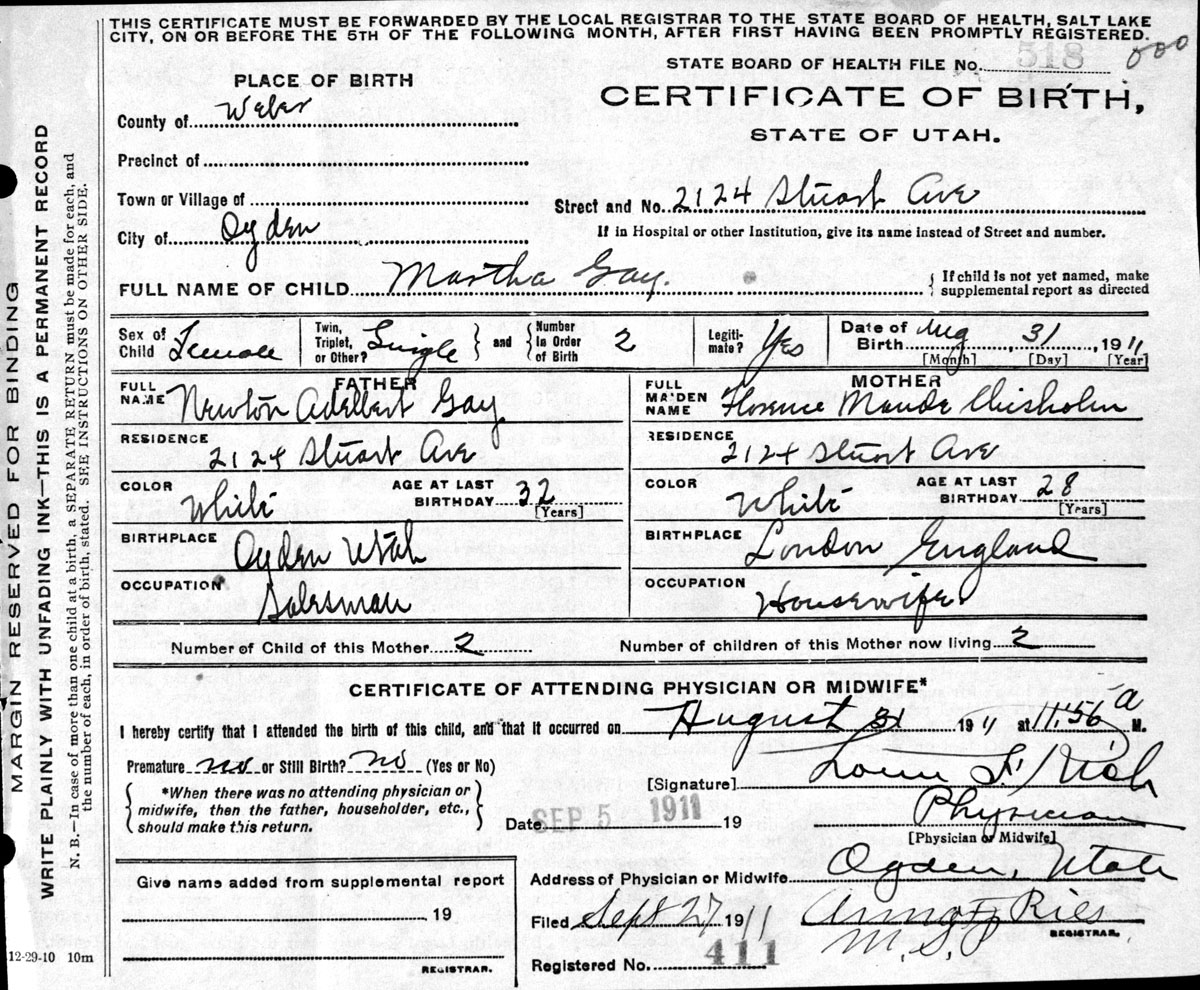 THIS CERTIFICATE MUST BE FORWARDED BY THE LOCAL REGISTRAR TO THE STATE BOARD OF HEALTH, SALT LAKE
CITY, ON OR BEFORE THE 5TH OF THE FOLLOWING MONTH, AFTER FIRST HAVING BEEN PROMPTLY REGISTERED.
STATE BOARD OF HEALTH FILE No. 518
PLACE OF BIRTH
CERTIFICATE OF BIRTH,
STATE OF UTAH.
County of Weber
Precinct of
Town or Village of
Street and No. 2124 Stuart Ave
City of Ogden
If in Hospital or other Institution, give its name instead of Street and number.
FULL NAME OF CHILD Martha Gay.
{ If child is not yet named, make
supplemental report as directed
Sex of Child Female
Twin, Triplet, or Other? Single } and { Number In Order of Birth 2
Legitimate? Yes
Date of Birth Aug, 31, 1911
[Month] [Day] [Year]
FATHER
FULL NAME Newton Adelbert Gay
RESIDENCE 2124 Stuart Ave
COLOR White
AGE AT LAST BIRTHDAY 32
[Years]
BIRTHPLACE Ogden Utah
OCCUPATION Salesman
MOTHER
FULL MAIDEN NAME Florence Maude Chisholm
RESIDENCE 2124 Stuart Ave
COLOR White
AGE AT LAST BIRTHDAY 28
[Years]
BIRTHPLACE London England
OCCUPATION Housewife.
Number of Child of this Mother 2
Number of children of this Mother now living 2
CERTIFICATE OF ATTENDING PHYSICIAN OR MIDWIFE*
I hereby certify that I attended the birth of this child, and that it occurred on August 31 1911 at 11:56 a M.
Premature no or Still Birth? no (Yes or No)
{ *When there was no attending physician or
midwife, then the father, householder, etc.,
should make this return. }
[Signature]
Date SEP 5 1911 19
Physician
[Physician or Midwife]
Address of Physician or Midwife Ogden, Utah
Filed Sept 27 1911
REGISTRAR.
Registered No. 411
Give name added from supplemental report
19
REGISTRAR.
12-29-10 10m
MARGIN RESERVED FOR BINDING
WRITE PLAINLY WITH UNFADING INK—THIS IS A PERMANENT RECORD
N. B.—In case of more than one child at a birth, a SEPARATE RETURN must be made for each, and
the number of each, in order of birth, stated. SEE INSTRUCTIONS ON OTHER SIDE.